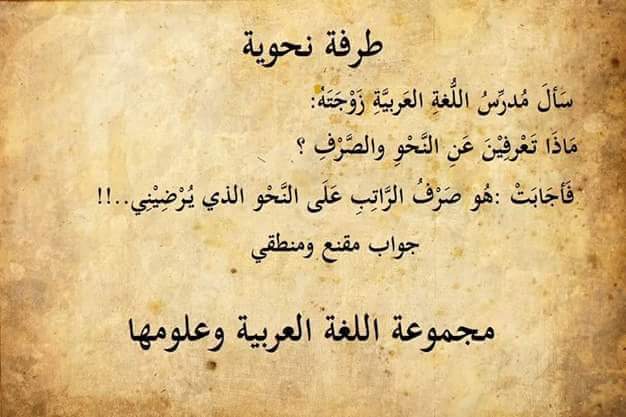 طرفة نحوية
سَألَ مُدرِّسُ اللُّغةِ العَربيَّةِ زَوْجَتَهُ:
مَاذَا تَعْرِفِيْنَ عَنِ النَّحْوِ والصَّرْفِ ؟
فَأَجَابَتْ :هُو صَرْفُ الرَّاتِبِ عَلَى النَّحْو الذي يُرْضِيْنِي..!!
جواب مقنع ومنطقي
مجموعة اللغة العربية وعلومها